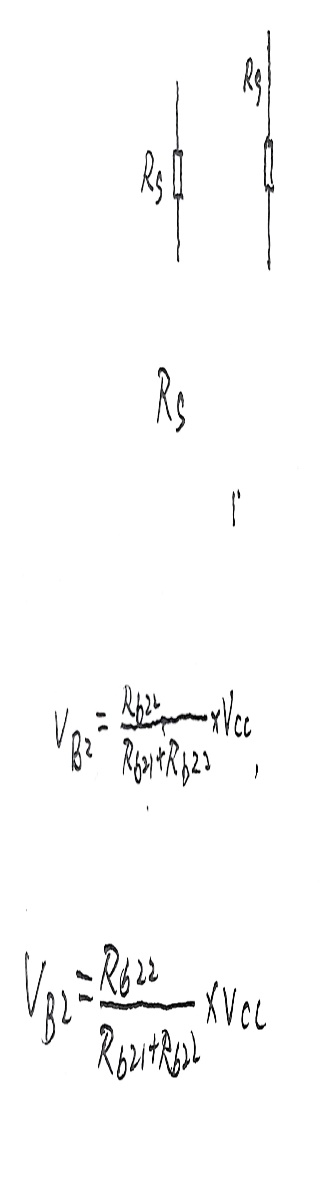 Rg
Rs
Rs
V_B2 = R_b22 / (R_b21 + R_b22) × Vcc,
V_B2 = R_b22 / (R_b21 + R_b22) × Vcc